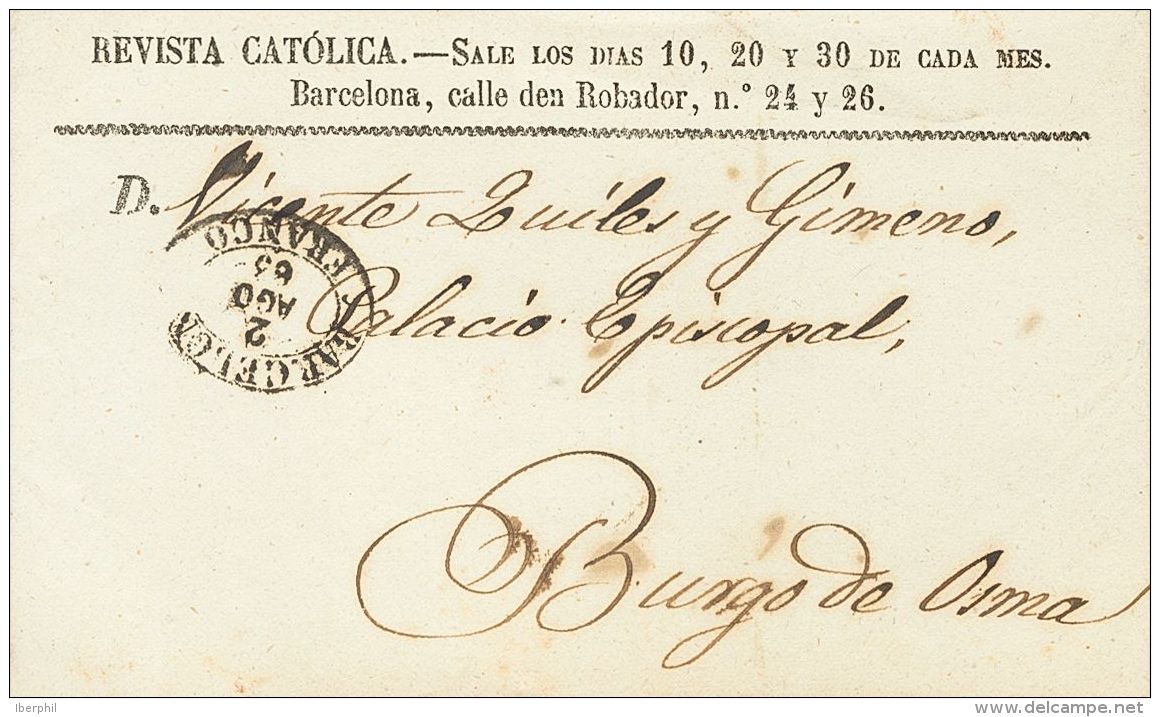 REVISTA CATÓLICA.—SALE LOS DIAS 10, 20 Y 30 DE CADA MES.
Barcelona, calle den Robador, n.° 24 y 26.
D. Vicente Quiles y Gimeno,
Palacio Episcopal,
Burgo de Osma
FRANCO
2
AGO
65
Iberphil
www.delcampe.net